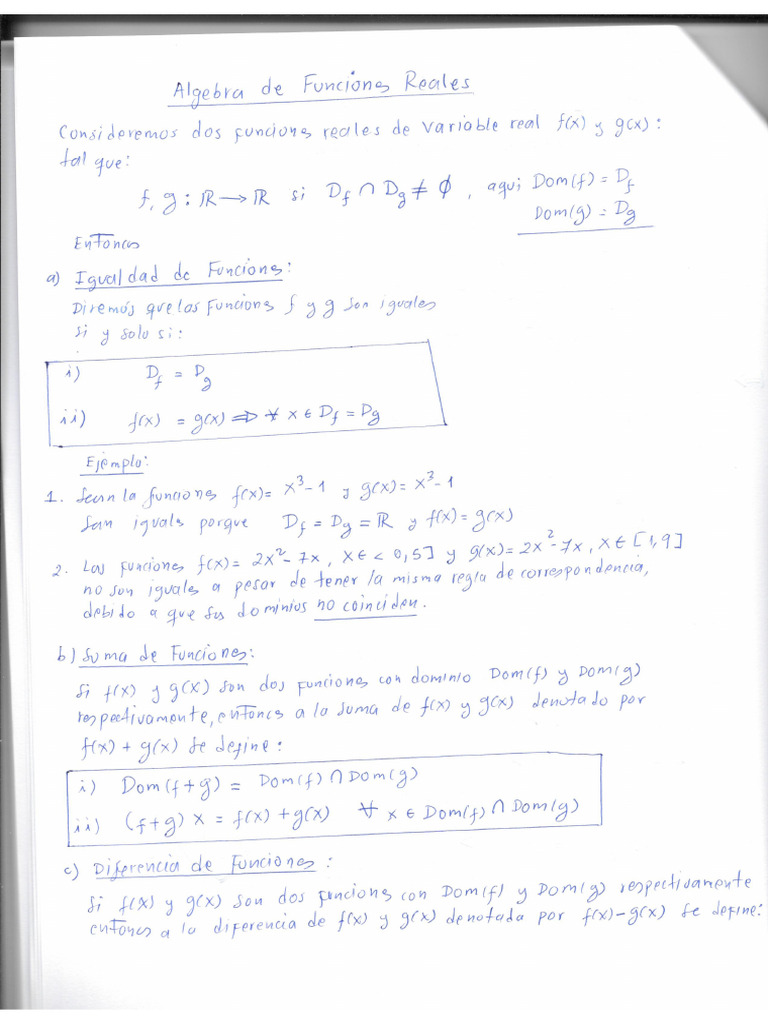 Algebra de Funciones Reales
Consideremos dos funciones reales de variable real f(x) y g(x) :
tal que:
f, g : ℝ → ℝ si D_f ∩ D_g ≠ ∅ , aqui Dom(f) = D_f
Dom(g) = D_g
Entonces
a) Igualdad de Funciones:
Diremos que las funciones f y g son iguales
si y solo si:
i) D_f = D_g
ii) f(x) = g(x) ⇒ ∀ x ∈ D_f = D_g
Ejemplo:
1. Sean la funciones f(x) = x³-1 y g(x) = x³-1
San iguales porque D_f = D_g = ℝ y f(x) = g(x)
2. Las funciones f(x) = 2x²-7x, x ∈ < 0,5] y g(x) = 2x²-7x, x ∈ [1,9]
no son iguales a pesar de tener la misma regla de correspondencia,
debido a que sus dominios no coinciden.
b) Suma de Funciones:
Si f(x) y g(x) son dos funciones con dominio Dom(f) y Dom(g)
respectivamente, entonces a la suma de f(x) y g(x) denotado por
f(x) + g(x) se define :
i) Dom(f+g) = Dom(f) ∩ Dom(g)
ii) (f+g) x = f(x) + g(x) ∀ x ∈ Dom(f) ∩ Dom(g)
c) Diferencia de Funciones :
Si f(x) y g(x) son dos funciones con Dom(f) y Dom(g) respectivamente
entonces a la diferencia de f(x) y g(x) denotada por f(x)-g(x) se define: